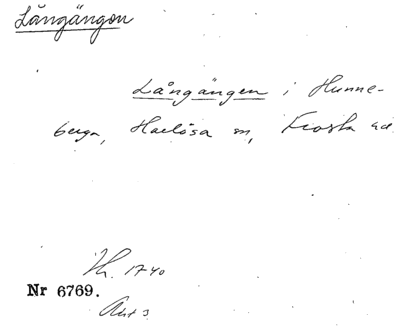 Långängen
Långängen i Hunne-
berga, Harlösa sn, Frosta hd
Kh. 1740
Nr 6769.
Akt 3